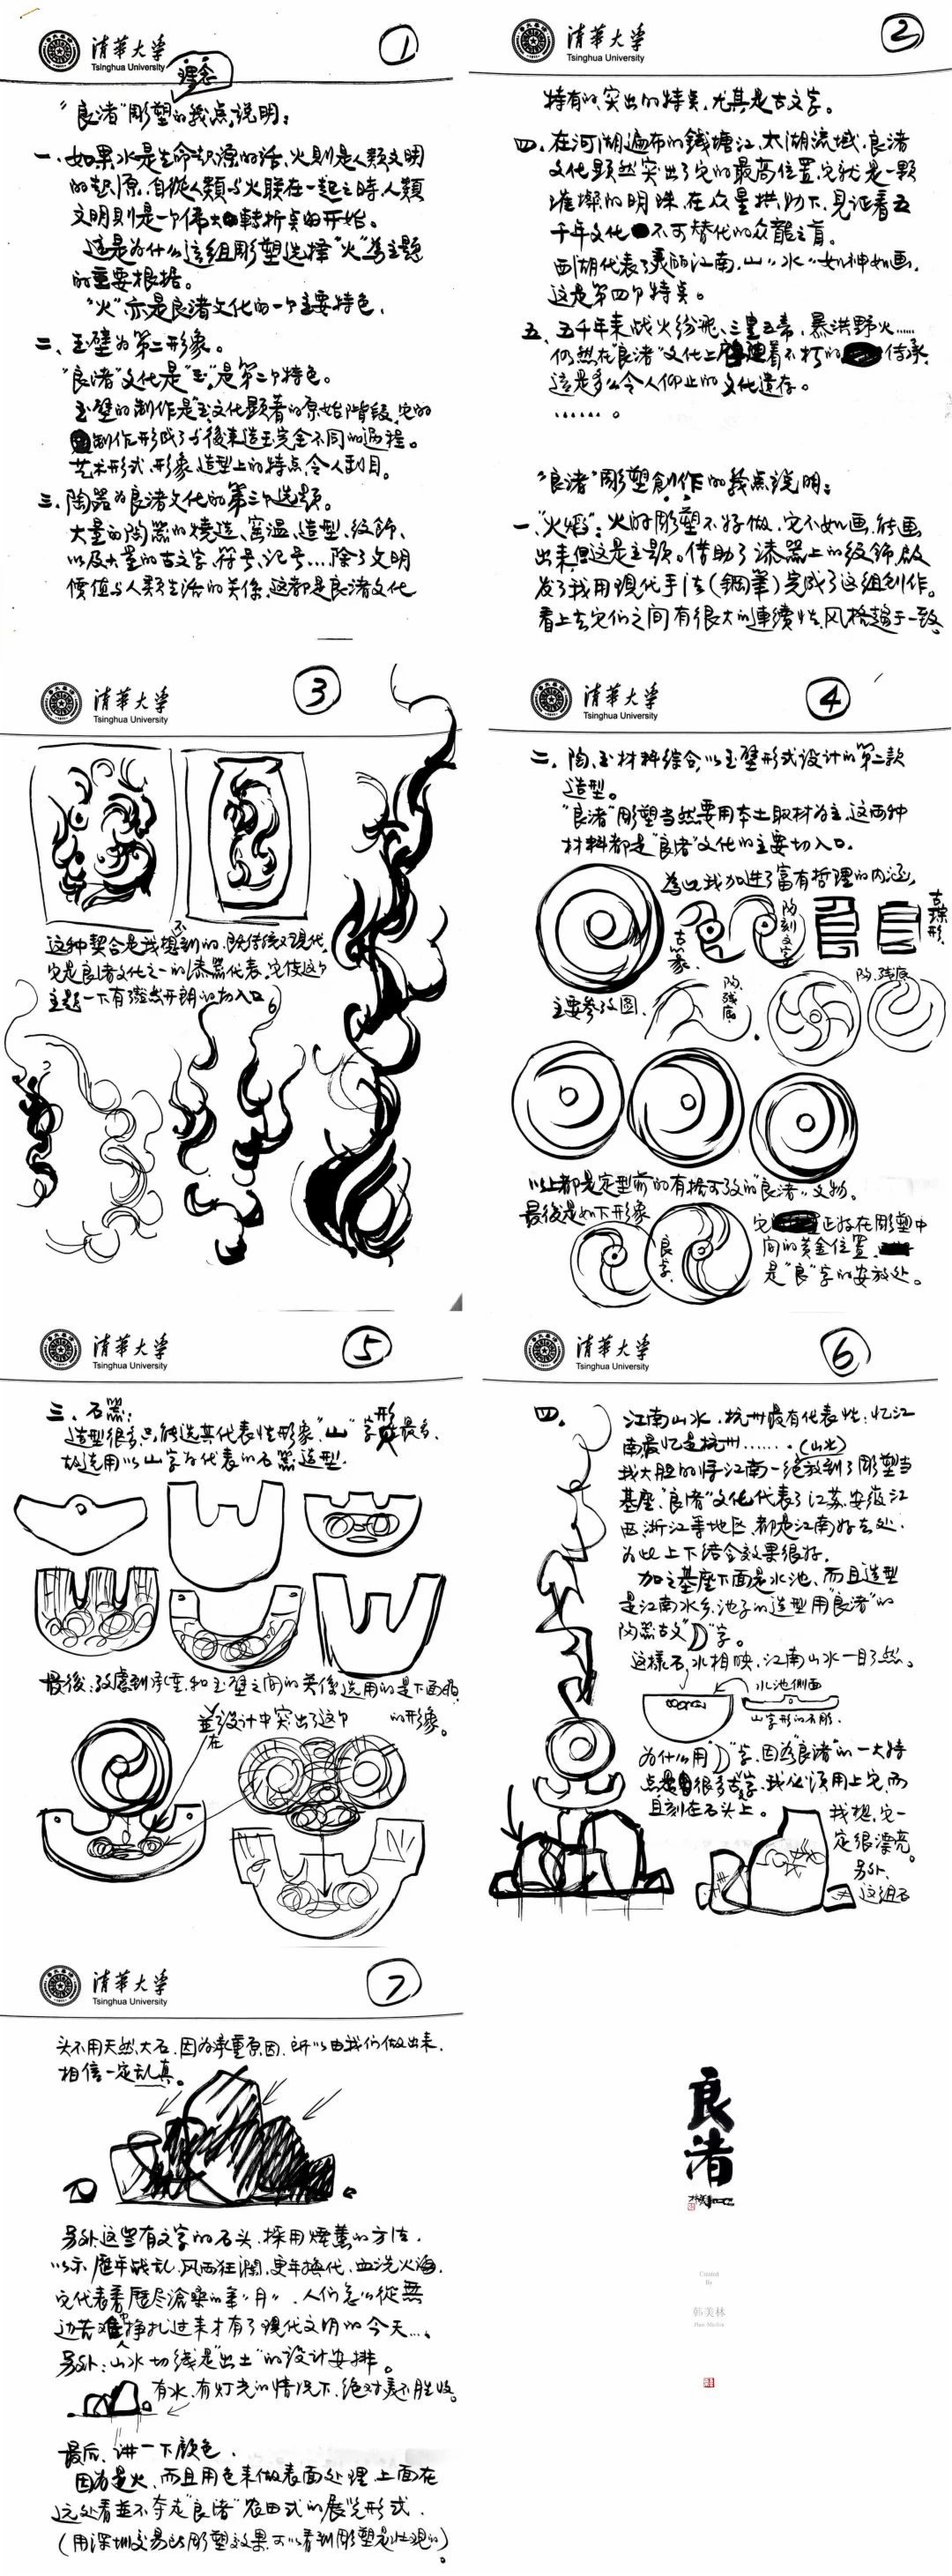 清華大学
Tsinghua University
①
理念
"良渚"彫塑的几点说明：
一、如果水是生命起源的话，火则是人類文明
的起源，自従人類与火联在一起之時，人類
文明则是一个偉大轉折点的开始。
这是为什么这组彫塑选择"火"為主题
的重要根据。
"火"亦是良渚文化的一个主要特色，
二、玉璧为第二形象。
"良渚"文化是"玉"，是第二个特色。
玉璧的制作是玉文化顕著的原始階段，它的
制作形成了与後来造玉完全不同的过程。
艺术形式、形象、造型上的特点令人刮目。
三、陶器为良渚文化的第三个选题。
大量的陶器的燒造、窑温、造型、紋飾，
以及大量的古文字、符号、记号…除了文明
價值与人類生活的关係，这都是良渚文化
清華大学
Tsinghua University
②
特有的、突出的特点，尤其是古文字。
四、在河湖遍布的錢塘江、太湖流域，良渚
文化顕然突出了它的最高位置，它就是一颗
璀璨的明珠，在众星拱励下，見证着五
千年文化不可替代的众龍之首。
西湖代表了美丽江南，山"水"如神如画，
这是第四个特点。
五、五千年来战火纷飛、三皇五帝，暴洪野火……
仍然在"良渚"文化上延着不朽的传承，
這是多么令人仰止的文化遗存。
……。
"良渚"彫塑創作的几点说明：
一、"火焰"：火的彫塑不好做，它不如画，能画
出来，但这是主题。借助了漆器上的纹飾啟
发了我用现代手法（鋼筆）完成了这组创作。
看上去它们之间有很大的連續性，风格趋于一致，
清華大学
Tsinghua University
③
这种契合是我想不到的，既传统又现代，
它是良渚文化之一的漆器代表，它使这个
主题一下有豁然开朗的切入口
清華大学
Tsinghua University
④
二、陶、玉材料綜合，以玉璧形式设计的第二款
造型。
"良渚"彫塑当然要用本土取材为主，这两种
材料都是"良渚"文化的主要切入口。
為此我加进了富有哲理的内涵，
古篆
陶刻文字
古琮形
主要参攷图。
陶残底
陶残底
以上都是定型前的有据可攷的"良渚"文物。
最後是如下形象
良字
它正好在彫塑中
间的黄金位置，
是"良"字的安放处。
清華大学
Tsinghua University
⑤
三、石器：
造型很多，只能选其代表性形象"山"字形最多，
故选用以山字为代表的石器造型。
最後，攷慮到承重和玉璧之间的关係，选用的是下面
的形象。
並在设计中突出了这个
清華大学
Tsinghua University
⑥
四、
江南山水，杭州最有代表性：忆江
南最忆是杭州……。（山水）
我大胆的将江南一绝放到了彫塑当
基座，"良渚"文化代表了江苏、安徽、江
西、浙江等地区，都是江南好去处，
为此上下结合效果很好。
加之基座下面是水池，而且造型
是江南水乡，池子的造型用"良渚"的
陶器古文"D"字。
这样石，水相映，江南山水一目了然。
水池側面
山字形的石彫。
为什么用"D"字，因为"良渚"的一大特
点是很多古字，我必须用上它，而
且刻在石头上。
我想，它一
定很漂亮。
另外，
这组石
清華大学
Tsinghua University
⑦
头不用天然大石，因为承重原因，所以由我们做出来，
相信一定乱真。
另外，这些有文字的石头，採用煙薰的方法，
以示歷年战乱，风雨狂澜，更年換代，血洗火海，
它代表着歷尽滄桑的年"月"，人们怎么從無
边苦难中挣扎过来才有了现代文明的今天…。
另外：山水切线是"出土"的设计安排。
有水，有灯光的情况下，绝对美不胜收。
最后，讲一下颜色，
因为是火，而且用色来做表面处理，上面在
远处看並不夺走"良渚"农田式的展览形式，
（用深圳交易所彫塑效果，可以看到彫塑是壮观的）。
良渚
Created
By
韩美林
Han Meilin